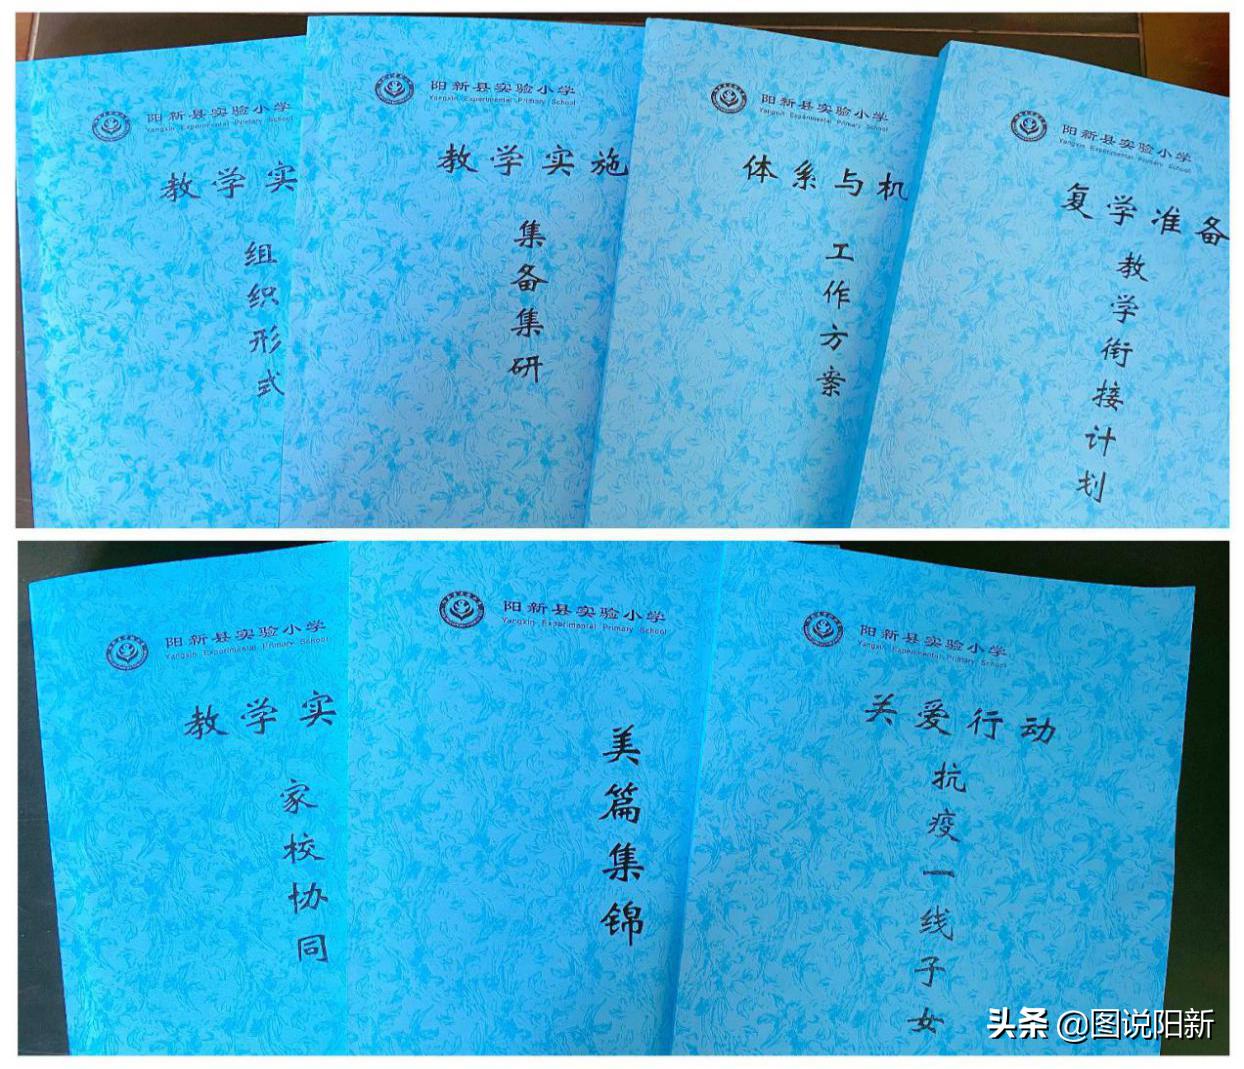 阳新县实验小学
Yangxin Experimental Primary School
教学实
组织形式
阳新县实验小学
Yangxin Experimental Primary School
教学实施
集备集研
阳新县实验小学
Yangxin Experimental Primary School
体系与机
工作方案
阳新县实验小学
Yangxin Experimental Primary School
复学准备
教学衔接计划
阳新县实验小学
Yangxin Experimental Primary School
教学实
家校协同
阳新县实验小学
Yangxin Experimental Primary School
美篇集锦
阳新县实验小学
Yangxin Experimental Primary School
关爱行动
抗疫一线子女
头条 @图说阳新